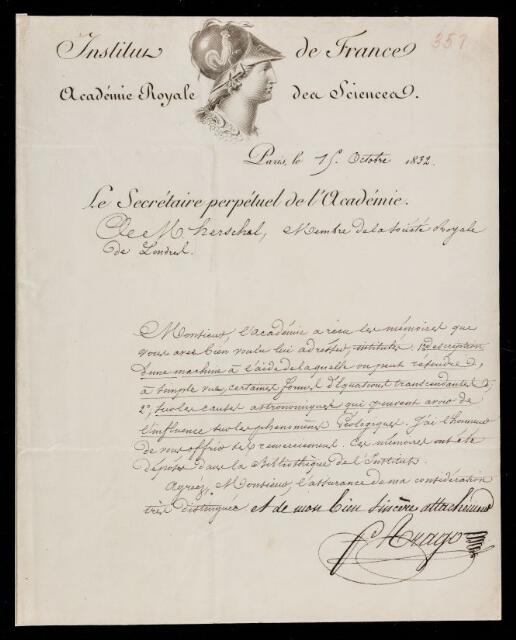 Institut de France
359
Académie Royale des Sciences.
Paris, le 15 Octobre 1832.
Le Secrétaire perpétuel de l'Académie.
à M. herschel, Membre de la société Royale
de Londres.
Monsieur, l'académie a reçu les mémoires que
vous avez bien voulu lui adresser, intitulés 1° description
d'une machine à l'aide de laquelle on peut résoudre,
à simple vue, certaines formes d'équations transcendantes;
2°, sur les causes astronomiques qui peuvent avoir de
l'influence sur les phénomènes Géologiques. J'ai l'honneur
de vous offrir ses remerciemens. Ces mémoires ont été
déposés dans la Bibliothèque de l'Institut.
Agréez, Monsieur, l'assurance de ma considération
très distinguée et de mon bien sincère attachement
f. Arago